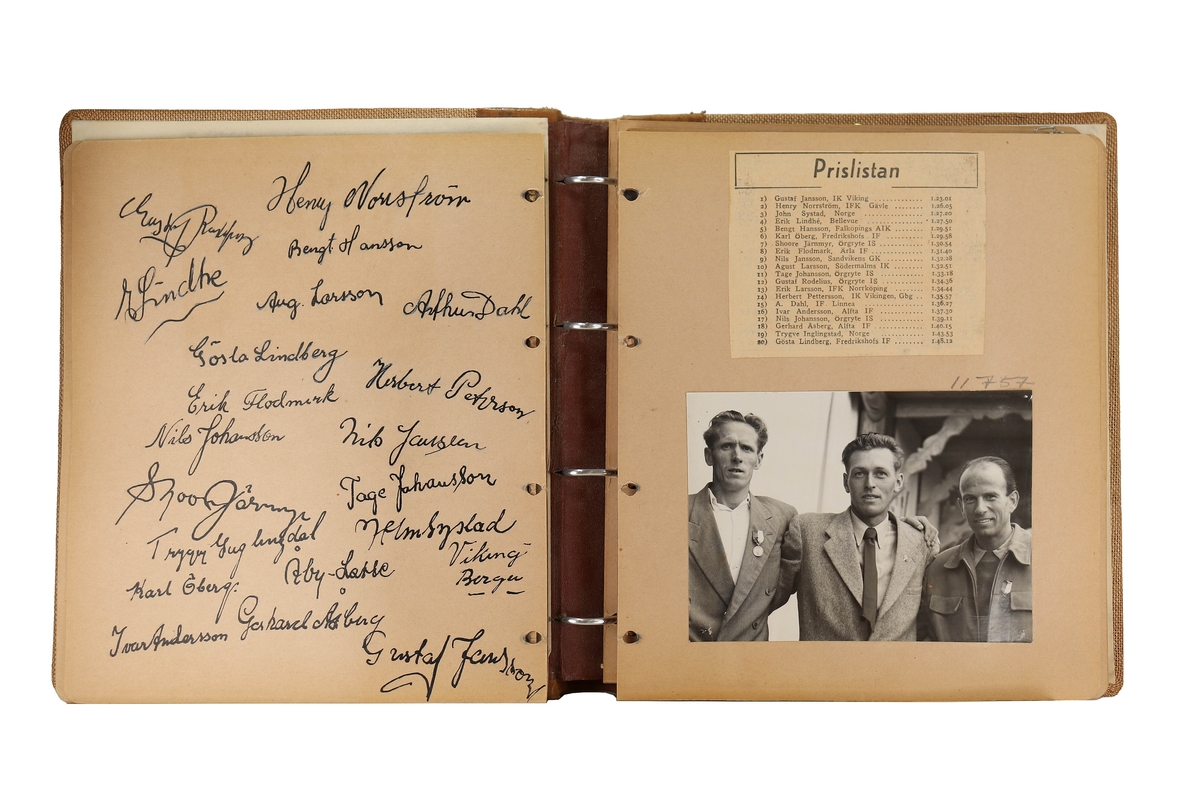 Henry Norrström
Gustaf
Bengt Hansson
E Lindhe
Aug. Larsson
Arthur Dahl
Gösta Lindberg
Herbert Peterson
Erik Flodmirk
Nils Johansson
Nils Janssen
Tage Johansson
Shoore Järnmyr
Karl Öberg.
Åby-Lasse
Viking
Berger
Ivar Andersson
Gerhard Åsberg
Gustaf Jansson
Prislistan
1) Gustaf Jansson, IK Viking ........... 1.23.02
2) Henry Norrström, IFK Gävle .......... 1.26.05
3) John Systad, Norge .......... 1.27.20
4) Erik Lindhé, Bellevue .......... 1.27.50
5) Bengt Hansson, Falköpings AIK ........ 1.29.51
6) Karl Öberg, Fredrikshofs IF .......... 1.29.58
7) Shoore Järnmyr, Örgryte IS .......... 1.30.54
8) Erik Flodmark, Ärla IF .......... 1.31.40
9) Nils Jansson, Sandvikens GK .......... 1.32.28
10) Agust Larsson, Södermalms IK ........ 1.32.51
11) Tage Johansson, Örgryte IS .......... 1.33.18
12) Gustaf Rodelius, Örgryte IS .......... 1.34.36
13) Erik Larsson, IFK Norrköping ........ 1.34.44
14) Herbert Pettersson, IK Vikingen, Gbg .. 1.35.57
15) A. Dahl, IF Linnea .......... 1.36.27
16) Ivar Andersson, Alfta IF .......... 1.37.30
17) Nils Johansson, Örgryte IS .......... 1.39.11
18) Gerhard Åsberg, Alfta IF .......... 1.40.15
19) Trygve Inglingstad, Norge .......... 1.43.53
20) Gösta Lindberg, Fredrikshofs IF ........ 1.48.12
11757